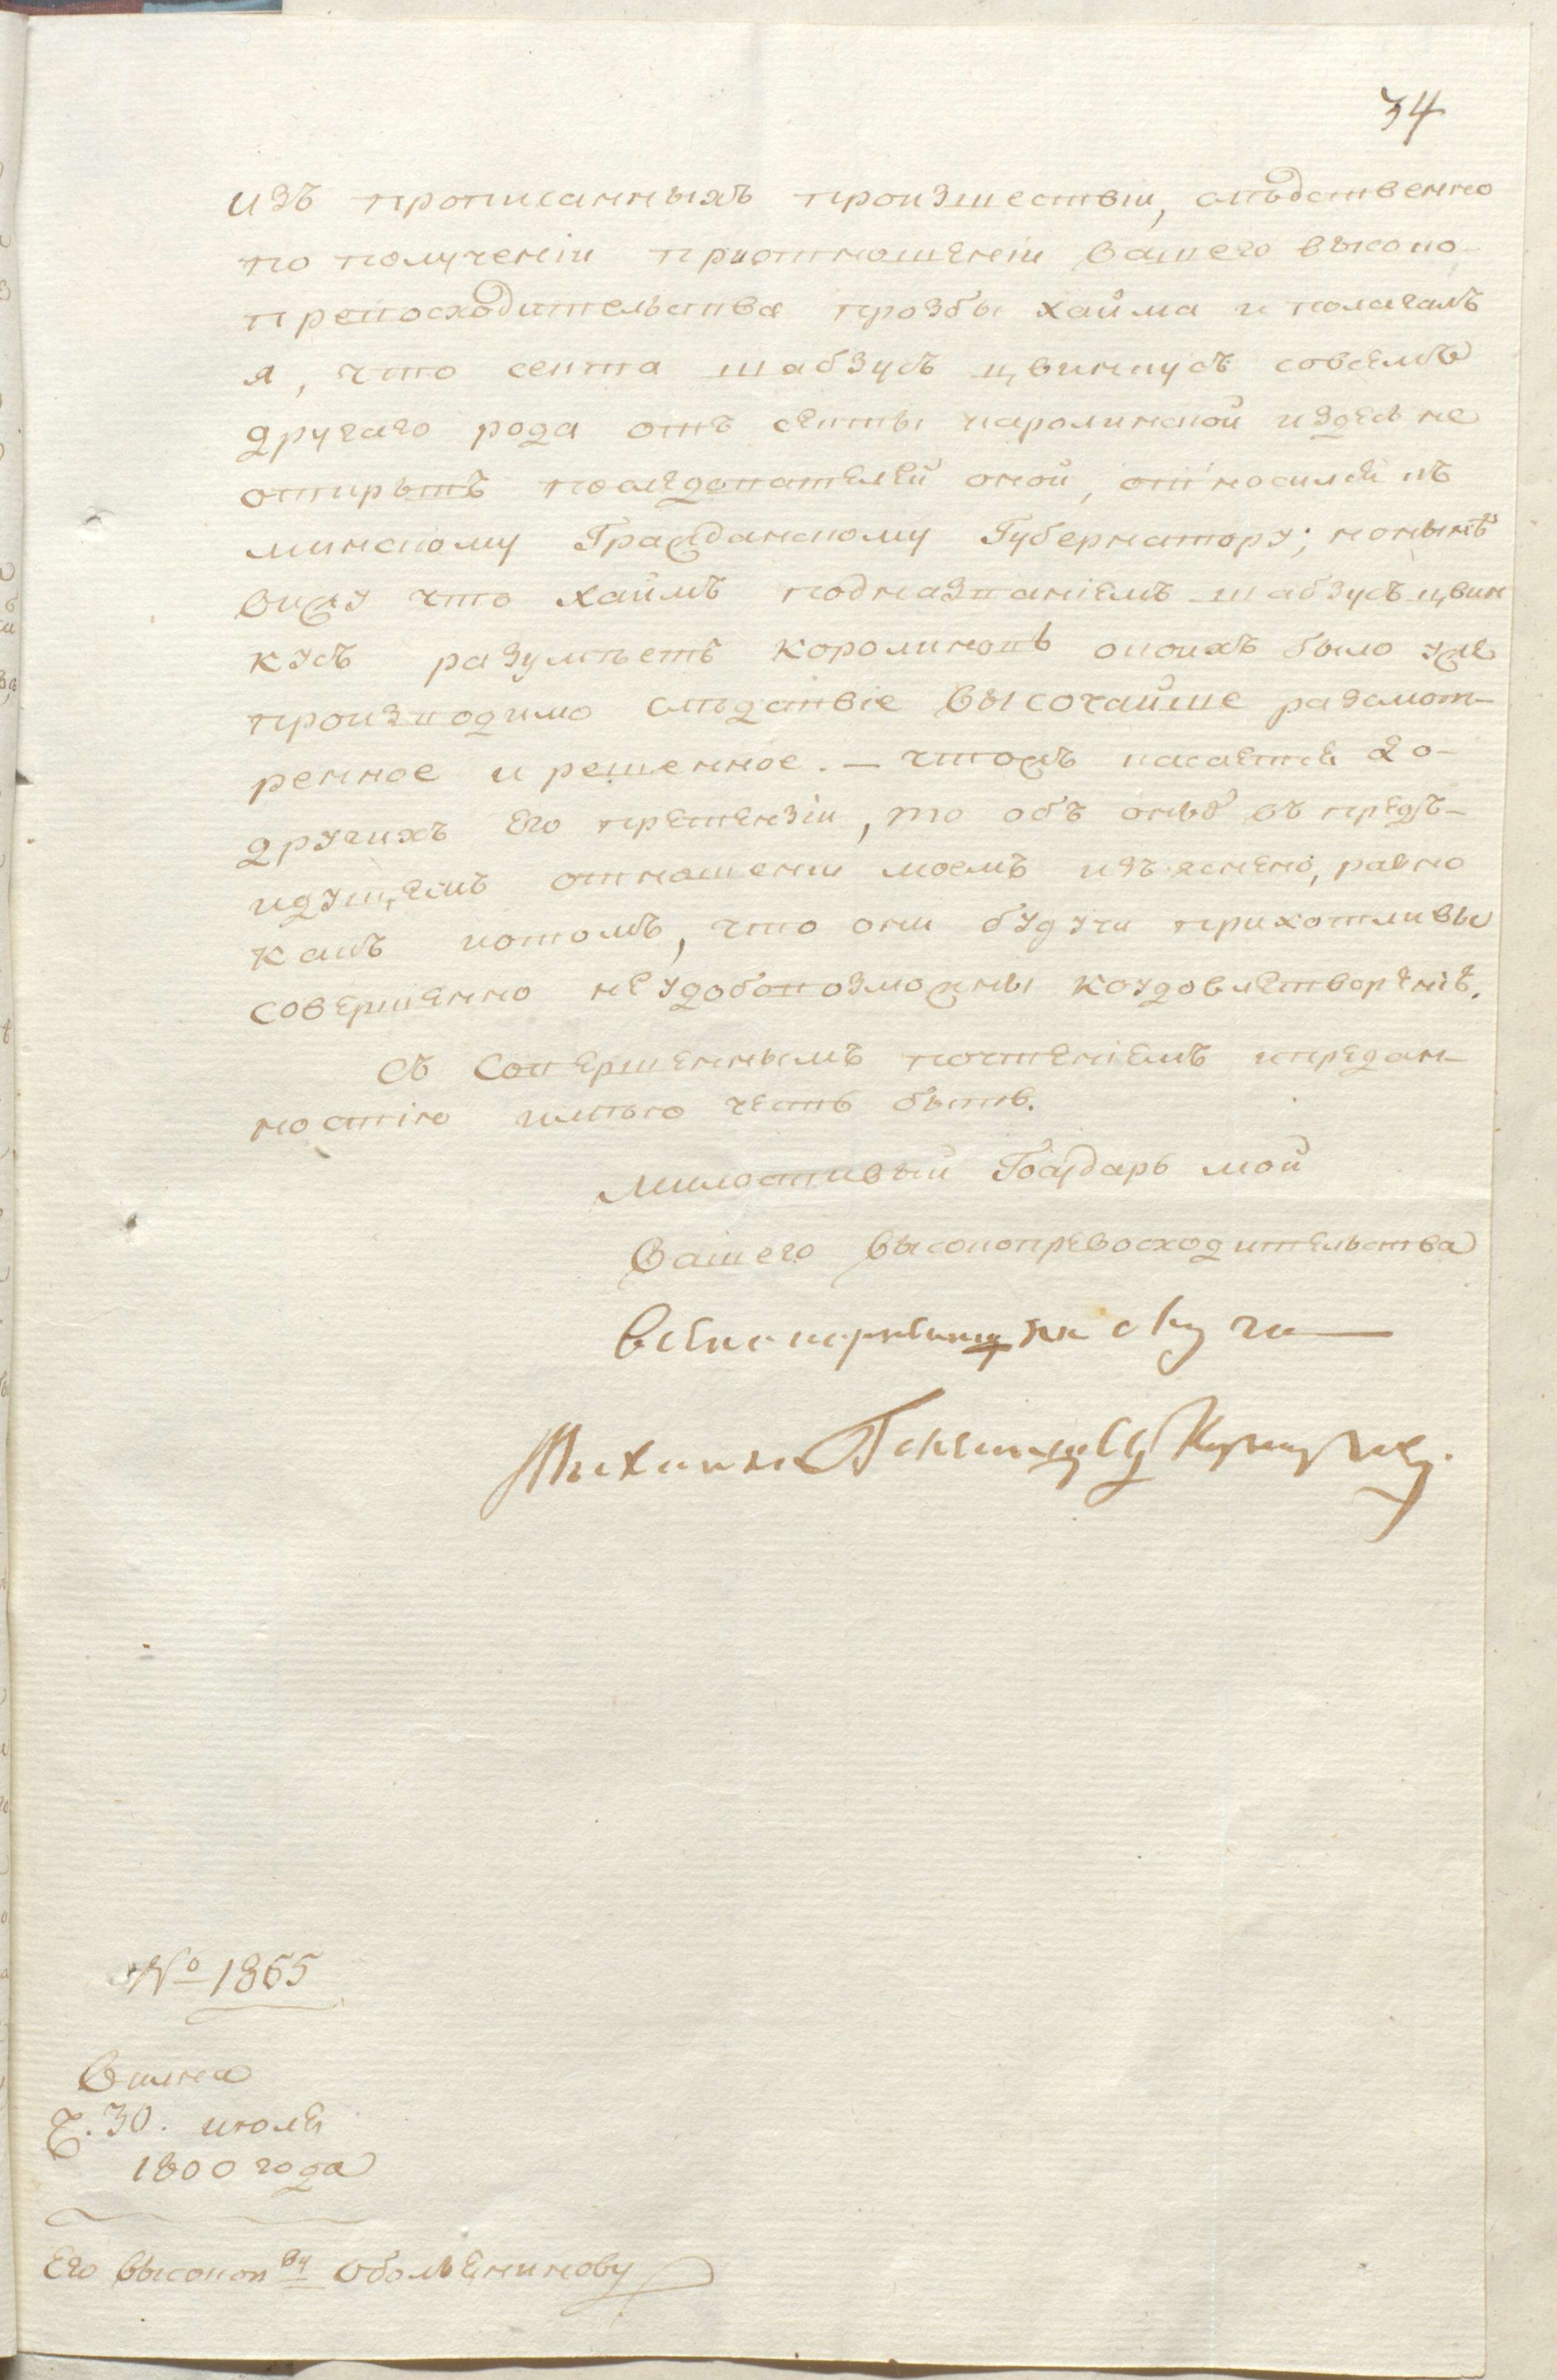 34
изъ прописанныхъ произшествіи, слѣдственно
по полученіи приотношеніи вашего высоко-
превосходительства прозбы хайма и полагалъ
я, что секта шабзусъ цвинкусъ совсѣмъ
другаго рода отъ секты каролинской издесь не
открытъ последователей оной, относился къ
минскому Гражданскому Губернатору; нонынѣ
вижу что хаймъ подназваніемъ шабзусъ цвин
кусъ разумѣетъ королиновъ окоихъ было уже
производимо слѣдствіе высочайше разсмот-
ренное и решенное. — чтожъ касается до-
другихъ его претензіи, то объ оныхъ въ предъ-
идущемъ отношеніи моемъ изъяснено, равно
какъ иотомъ, что они будучи прихотливы
совершенно неудобовозможны коудовлетворенію.
Съ Совершеннымъ почтеніемъ ипредан-
ностію имѣю честь быть.
Милостивый Государь мой
Вашего высокопревосходительства
всепокорнѣйшій слуга
Михаила Голенищевъ Кутузовъ.
№ 1865
Вилна
Ч. 30. июля
1800 года
Его высокоп ву Обольянинову